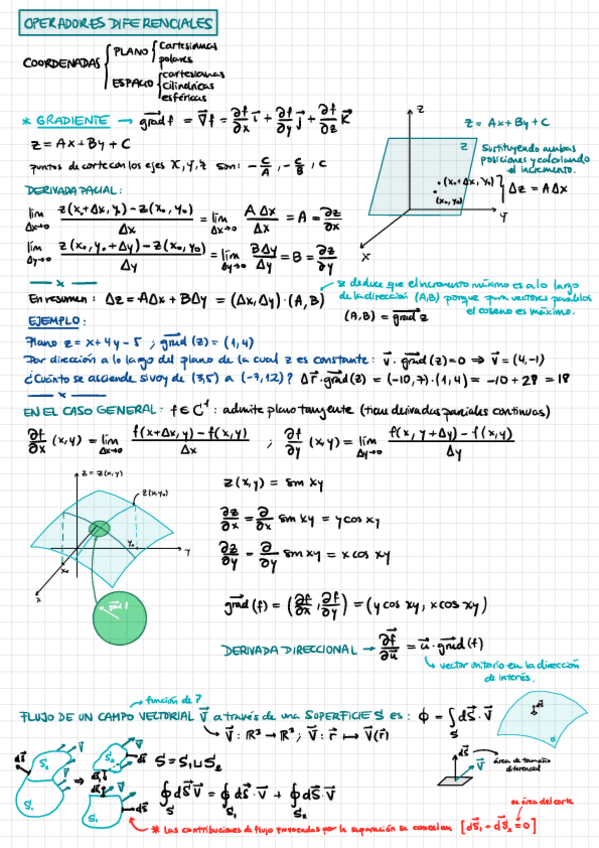 OPERADORES DIFERENCIALES
COORDENADAS { PLANO { Cartesianas
polares
ESPACIO { cartesianas
cilíndricas
esféricas
* GRADIENTE → grad f = ∇f = ∂f/∂x i + ∂f/∂y j + ∂f/∂z k
z = Ax + By + C
puntos de corte con los ejes x, y, z son: -C/A, -C/B, C
z
z = Ax + By + C
z
Sustituyendo ambas
posiciones y calculando
el incremento.
(x₀+Δx, y₀)
(x₀, y₀)
Δz = AΔx
y
x
DERIVADA PACIAL:
lim Δx→0 z(x₀+Δx, y₀) - z(x₀, y₀) / Δx = lim Δx→0 AΔx/Δx = A = ∂z/∂x
lim Δy→0 z(x₀, y₀+Δy) - z(x₀, y₀) / Δy = lim Δy→0 BΔy/Δy = B = ∂z/∂y
x
En resumen: Δz = AΔx + BΔy = (Δx, Δy)·(A, B)
se deduce que el incremento máximo es a lo largo
de la dirección (A,B) porque para vectores paralelos
el coseno es máximo.
(A, B) = grad z
EJEMPLO:
Plano z = x + 4y - 5 ; grad (z) = (1, 4)
Por dirección a lo largo del plano de la cual z es constante: v · grad(z) = 0 ⇒ v = (4, -1)
¿Cuánto se asciende si voy de (3,5) a (-7,12)? Δr · grad(z) = (-10, 7)·(1, 4) = -10 + 28 = 18
x
EN EL CASO GENERAL: f ∈ C¹: admite plano tangente (tiene derivadas parciales continuas)
∂f/∂x (x,y) = lim Δx→0 f(x+Δx, y) - f(x,y) / Δx ; ∂f/∂y (x,y) = lim Δy→0 f(x, y+Δy) - f(x,y) / Δy
z = z(x,y)
z(x₀,y₀)
y₀
y
x₀
x
grad f
z(x,y) = sen xy
∂z/∂x = ∂/∂x sen xy = y cos xy
∂z/∂y = ∂/∂y sen xy = x cos xy
grad (f) = (∂f/∂x, ∂f/∂y) = (y cos xy, x cos xy)
DERIVADA DIRECCIONAL → ∂f/∂u = u · grad (f)
vector unitario en la dirección
de interés.
función de r
FLUJO DE UN CAMPO VECTORIAL V a través de una SUPERFICIE S es: Φ = ∫S dS · V
V: ℝ³ → ℝ³; V: r ↦ V(r)
S = S₁ ⊔ S₂
∮S dS V = ∮S₁ dS · V + ∮S₂ dS · V
área de tamaño
diferencial
en área del corte
* Las contribuciones de flujo provocadas por la separación se cancelan [dS₁ + dS₂ = 0]